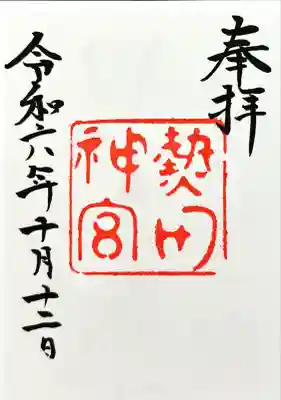 奉拝
熱田
神宮
令和六年十月十二日